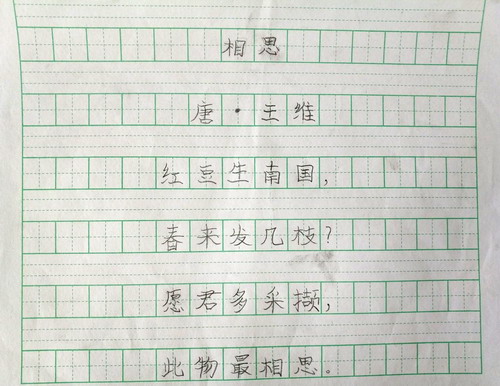 相思
唐·王维
红豆生南国,
春来发几枝?
愿君多采撷,
此物最相思.